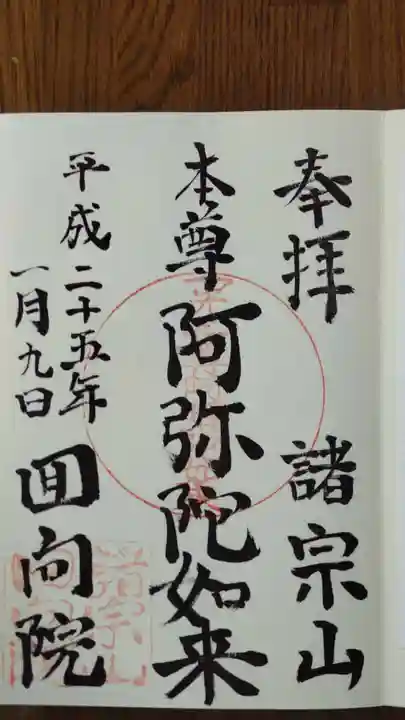 奉拝
諸宗山
本尊 阿弥陀如来
平成二十五年
一月九日
回向院